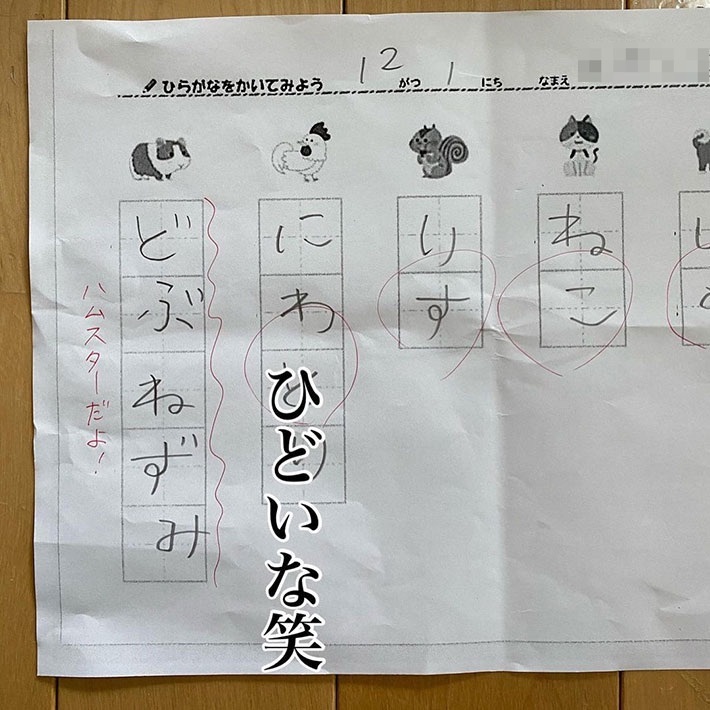 ひらがなをかいてみよう 12がつ 1にち なまえ
ねこ
りす
にわとり
どぶねずみ
ハムスターだよ!
ひどいな笑